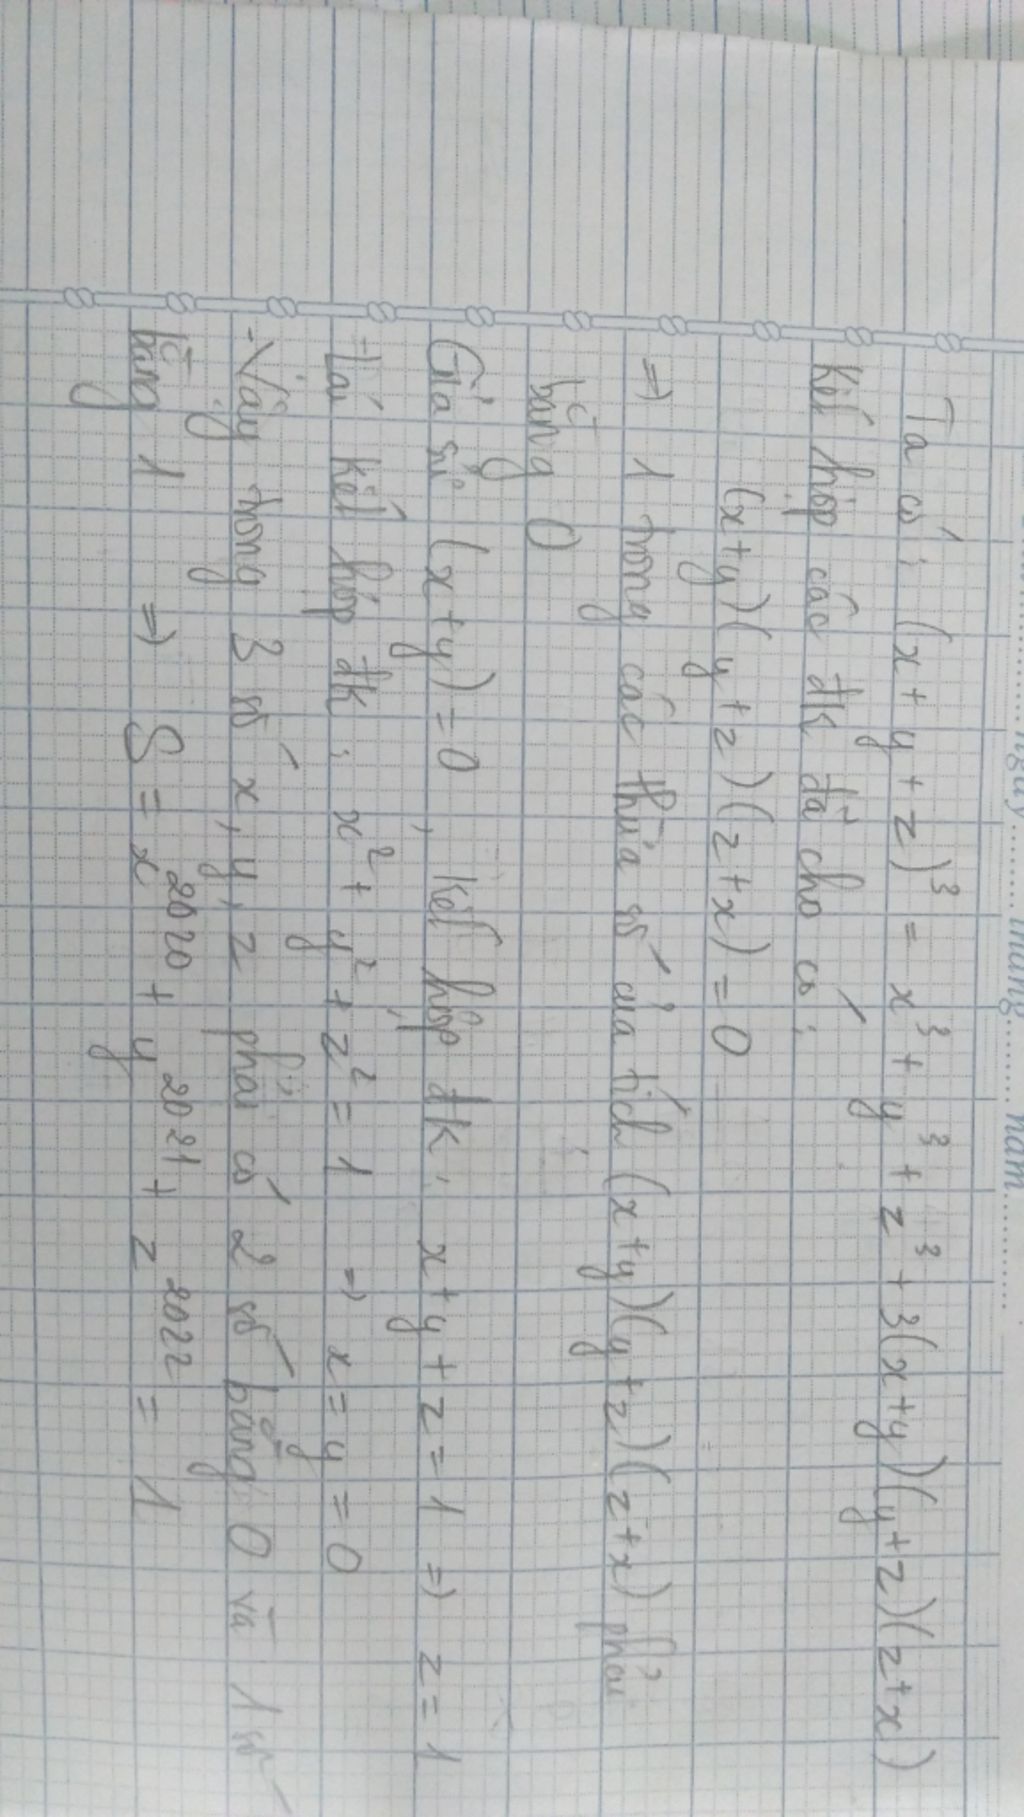 ngày........ tháng........ năm............
Ta có: (x+y+z)³ = x³ + y³ + z³ + 3(x+y)(y+z)(z+x)
Kết hợp các đk đã cho có:
(x+y)(y+z)(z+x) = 0
=> 1 trong các thừa số của tích (x+y)(y+z)(z+x) phải
bằng 0
Giả sử (x+y)=0, kết hợp đk: x+y+z=1 => z=1
-Lại kết hợp đk: x²+y²+z²=1 => x=y=0
-Vậy trong 3 số x,y,z phải có 2 số bằng 0 và 1 số
bằng 1 => S = x²⁰²⁰ + y²⁰²¹ + z²⁰²² = 1